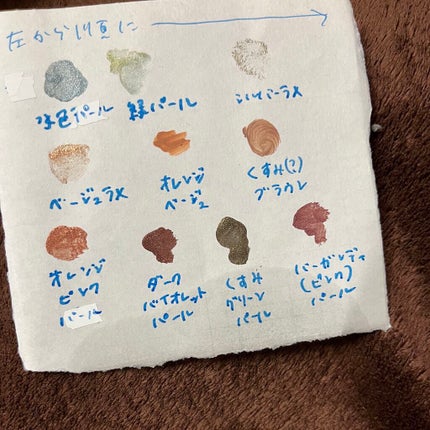 左から順に
水色パール 緑パール シルバーラメ
ベージュラメ オレンジ くすみ(?)
ベージュ ブラウン
オレンジ ダーク くすみ バーガンディ
ピンク バイオレット グリーン (ピンク)
パール パール パール パール